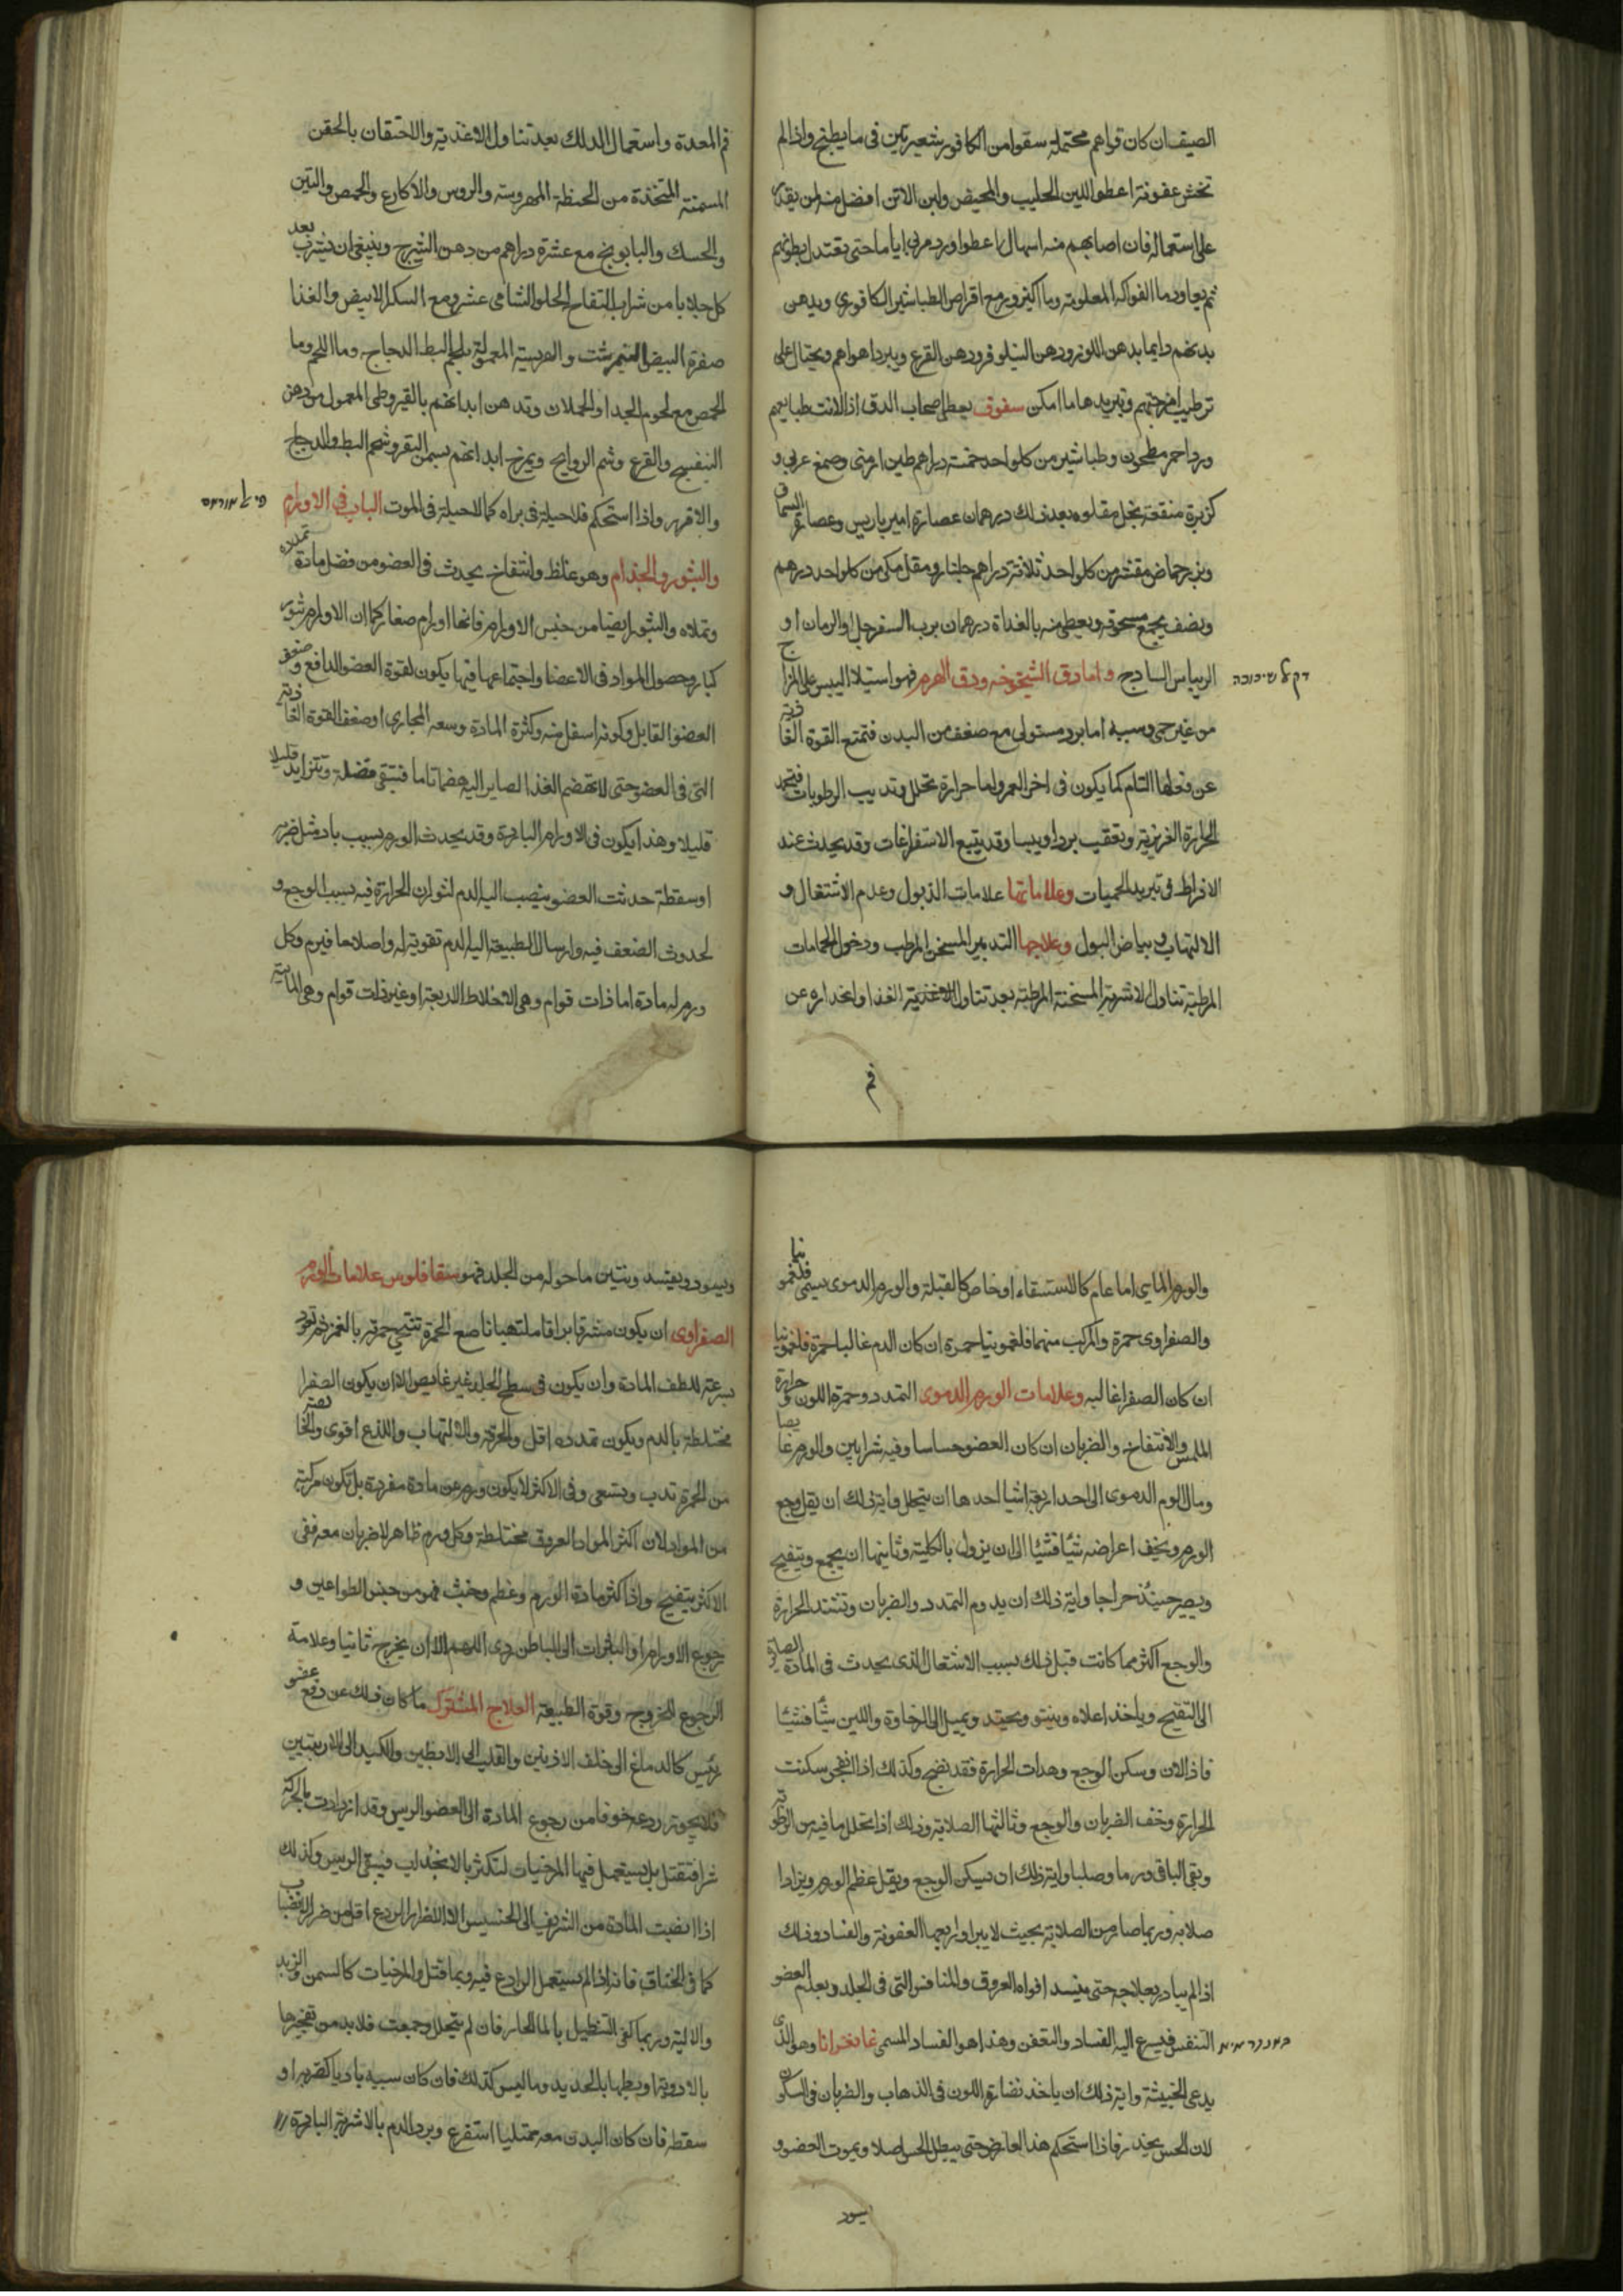 الصيف ان كان قواهم محتملة سقوا من الكافور شعيرتين في ما يطبخ واذا لم
تخش عفونة اعطوا اللبن الحليب والمخيض ولبن الاتن افضل منه لمن يقدر
على استعماله فان اصابهم منه اسهال اعطوا ورد مربى اياما حتى يعتدل بطونهم
ثم يعاود ما الفواكه المعلومة وما اكثر ورم مع اقراص الطباشير الكافوري ويدهن
بدنهم دايما بدهن اللوز ودهن النيلوفر ودهن القرع ويبرد اهواهم ويحتال على
ترطيب امزجتهم وتبريدها ما امكن سفوف يعطى اصحاب الدق اذا لانت طبايعهم
ورد احمر مطحون وطباشير من كل واحد خمسة دراهم طين ارمني وصمغ عربي و
كزبرة منقعة بخل مقلوه بعد ذلك درهمان عصارة امير باريس وعصارة السماق
وبزر حماض مقشر من كل واحد ثلاثة دراهم جلنار ومقل مكي من كل واحد درهم
ونصف يجمع مسحوقه ويعطى منه بالغداة درهمان برب السفرجل او الرمان او
الريباس الساذج واما دق الشيخوخه ودق الهرم فهو استيلا اليبس على المزاج
من غير حمى وسببه اما برد مستولي مع ضعف من البدن فتمنع القوة الغاذية
عن فعلها التام كما يكون في اخر العمر واما حرارة تحلل وتذيب الرطوبات فتخمد
الحرارة الغريزية وتعقب بردا ويبسا وقد يتبع الاستفراغات وقد يحدث عند
الافراط في تبريد الحميات وعلاماتها علامات الذبول وعدم الاشتعال و
الالتهاب وبياض البول وعلاجها التدبير المسخن المرطب ودخول الحمامات
المرطبة تناول الاشربة المسخنة المرطبة بعد تناول الاغذية الغذا وانحداره عن
فم
فم المعدة واستعمال الدلك بعد تناول الاغذية والاحتقان بالحقن
المسمنة المتخذة من الحنطة المهروسة والروس والاكارع والحمص والتين
والحسك والبابونج مع عشرة دراهم من دهن الشيرج وينبغي ان يشرب بعد
كل جلابا من شراب التفاح الحلو الشامي عشرة مع السكر الابيض والغذا
صفرة البيض النيمرشت والهريسة المعمولة بلحم البط الدجاج وما اللحم وما
الحمص مع لحوم الجدا والحملان وتدهن ابدانهم بالقيروطي المعمول من دهن
البنفسج والقرع وشم الروايح ويمرخ ابدانهم بسمن البقر وشحم البط والدجاج
والاقر واذا استحكم فلا حيلة في براه كما لا حيلة في الموت الباب في الاورام
والبثور والجذام وهو غلظ وانتفاخ يحدث في العضو من فضل مادة تملاه
وتملاه والبثور ايضا من جنس الاورام فانها اورام صغار كما ان الاورام بثور
كبار وحصول المواد في الاعضا واجتماعها فيها يكون لقوة العضو الدافع وضعف
العضو القابل وكونه اسفل منه وكثرة المادة وسعه المجاري او ضعف القوة الغاذية
التي في العضو حتى لا تهضم الغذا الصاير اليه هضما تاما فتبقى فضلة وتتزايد قليلا
قليلا وهذا يكون في الاورام الباردة وقد يحدث الورم بسبب باد مثل ضربة
او سقطة حدثت العضو ينصب اليه الدم لثوران الحرارة فيه بسبب الوجع و
لحدوث الضعف فيه وارسال الطبيعة اليه الدم تقوية له واصلاحا فيرم وكل
ورم له مادة اما ذات قوام وهي الاخلاط الاربعة او غير ذات قوام وهي المائية
والورم المايي اما عام كالاستسقاء او خاص كالقيلة والورم الدموي يسمى فلغمونيا
والصفراوي حمرة والمركب منهما فلغمونيا حمرة ان كان الدم غالبا حمرة فلغمونيا
ان كان الصفرا غالبه وعلامات الورم الدموي التمدد وحمرة اللون وحرارة
الملمس والانتفاخ والضربان ان كان العضو حساسا وفيه شرايين والورم غايصا
ومال الورم الدموي الى احد اربعة اشيا احدها ان يتحلل واية ذلك ان يقل وجع
الورم ويخف اعراضه شيئا فشيئا الى ان يزول بالكلية وثانيها ان يجمع ويتقيح
ويصير حينئذ خراجا واية ذلك ان يدوم التمدد والضربان وتشتد الحرارة
والوجع اكثر مما كانت قبل ذلك بسبب الاشتعال الذي يحدث في المادة الصايرة
الى التقيح وياخذ اعلاه وينتو ويحتد ويميل الى الرخاوة واللين شيئا فشيئا
فاذا لان وسكن الوجع وهدات الحرارة فقد نضج وكذلك اذا انفجر سكنت
الحرارة وخف الضربان والوجع وثالثها الصلابة وذلك اذا تحلل ما فيه من الرطوبة
وبقي الباقي ورما وصلبا واية ذلك ان يسكن الوجع ويقل عظم الورم ويزداد
صلابه وربما صار من الصلابة بحيث لا يبرا ورابعها العفونة والفساد وذلك
اذا لم يبادر بعلاجه حتى يفسد افواه العروق والمنافس التي في الجلد ويعدم العضو
التنفس فيسرع اليه الفساد والتعفن وهذا هو الفساد المسمى غانغرانا وهو الذي
يدعى الخبيثة واية ذلك ان ياخذ نضارة اللون في الذهاب والضربان في السكون
لان الحس يخدر فاذا استحكم هذا العارض حتى يبطل الحس اصلا ويموت العضو و
يسود
ويسود ويفسد وينتن ما حوله من الجلد فهو سقاقلوس علامات الورم
الصفراوي ان يكون مشرقا براقا ملتهبا ناصع الحمرة تنتحي حمرته بالغمز ثم تعود
بسرعة للطف المادة وان يكون في سطح الجلد غير غايص الا ان يكون الصفرا
مختلطة بالدم ويكون تمدده اقل والحرقة والالتهاب واللذع اقوى والخاصة
من الحمرة تدب وتسعى وفي الاكثر لا يكون ورم عن مادة مفردة بل تكون مركبة
من المواد لان اكثر المواد العروق مختلطة وكل ورم ظاهر لا ضربان معه ففي
الاكثر يتقيح واذا كثر مادة الورم وعظم وخبث فهو من جنس الطواعين و
رجوع الاورام والبثرات الى الباطن ردي اللهم الا ان يخرج ثانيا وعلامة
الرجوع للخروج وقوة الطبيعة العلاج المشترك ما كان ذلك عن دفع عضو
رئيس كالدماغ الى خلف الاذنين والقلب الى الابطين والكبد الى الاربيتين
فلا يجوز ردعه خوفا من رجوع المادة الى العضو الريس وقد ازدادت بالحركة
شرا فتقتل بل يستعمل فيها المرخيات لتكثر بالانجذاب فيبقى الريس وكذلك
اذا انصبت المادة من الشريف الى الخسيس الا اضرار الردع اقل من ضرار الانصباب
كما في الخناق فانه اذا لم يستعمل الرادع فيه ربما قتل والمرخيات كالسمن والزبد
والالية وربما كفى التنطيل بالما الحار فان لم يتحلل وجمعت فلا بد من تفجيرها
بالادوية او بطها بالحديد وما ليس كذلك فان كان سببه باديا كضربه او
سقطه فان كان البدن معه ممتليا استفرغ وبرد الدم بالاشربة الباردة